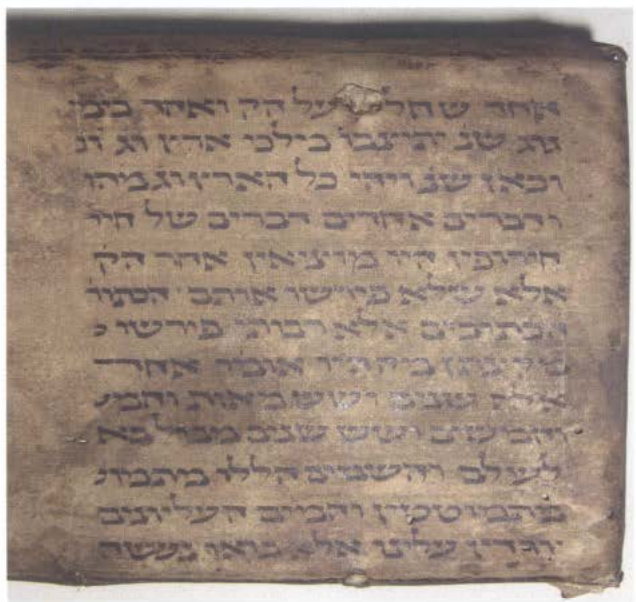 אחר על הק ואחר בימי
גוג שנ יתייצבו מילכי ארץ וג
וכאן שנ ויהי כל הארץ וג מהו
ודברים אחדים דברים של חיד
חירופין היו מוציאין אחר הק
אלא שלא פירשו אותם הסתור
הכתובים אלא רבותי פירשו כ
היו אומר אחד
אלף שנים ושש מאות וחמש
וחמשים ושש שנים מבול בא
לעולם והשמים הללו מתמוט
מתמוטטין והמים העליונים
יורדין עלינו אלא בואו נעשה